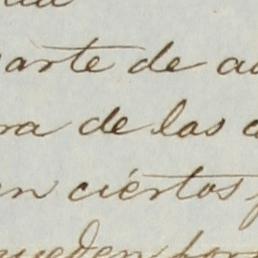 arte de a
ra de las
en ciértos
pueden por